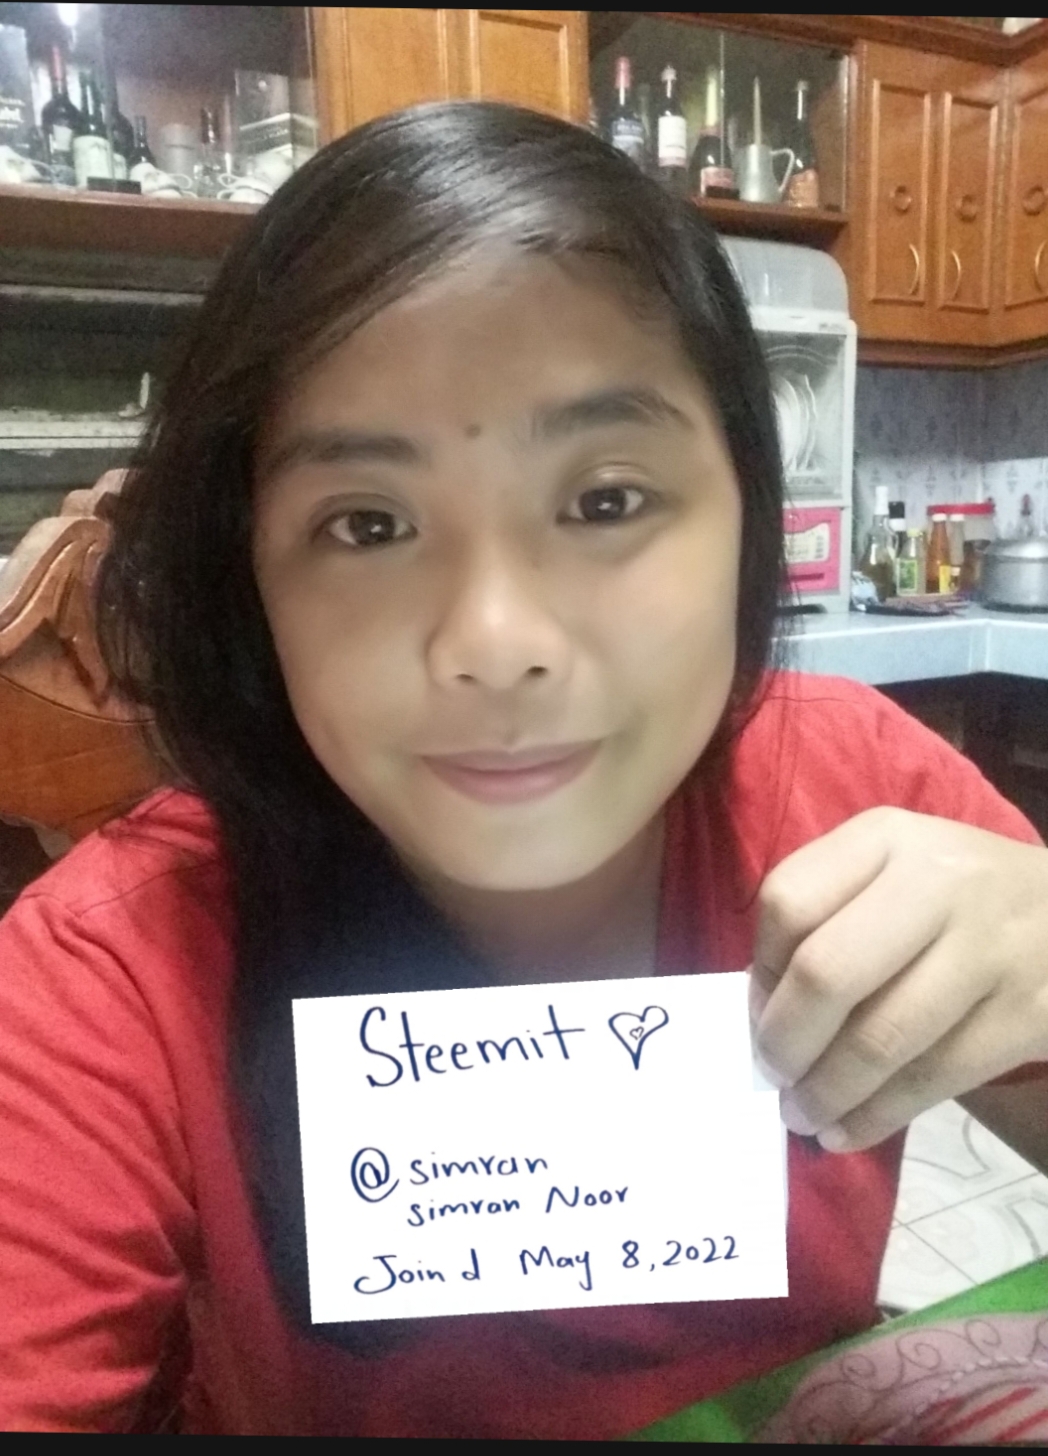 Steemit
@simran
simran Noor
Joind May 8,2022